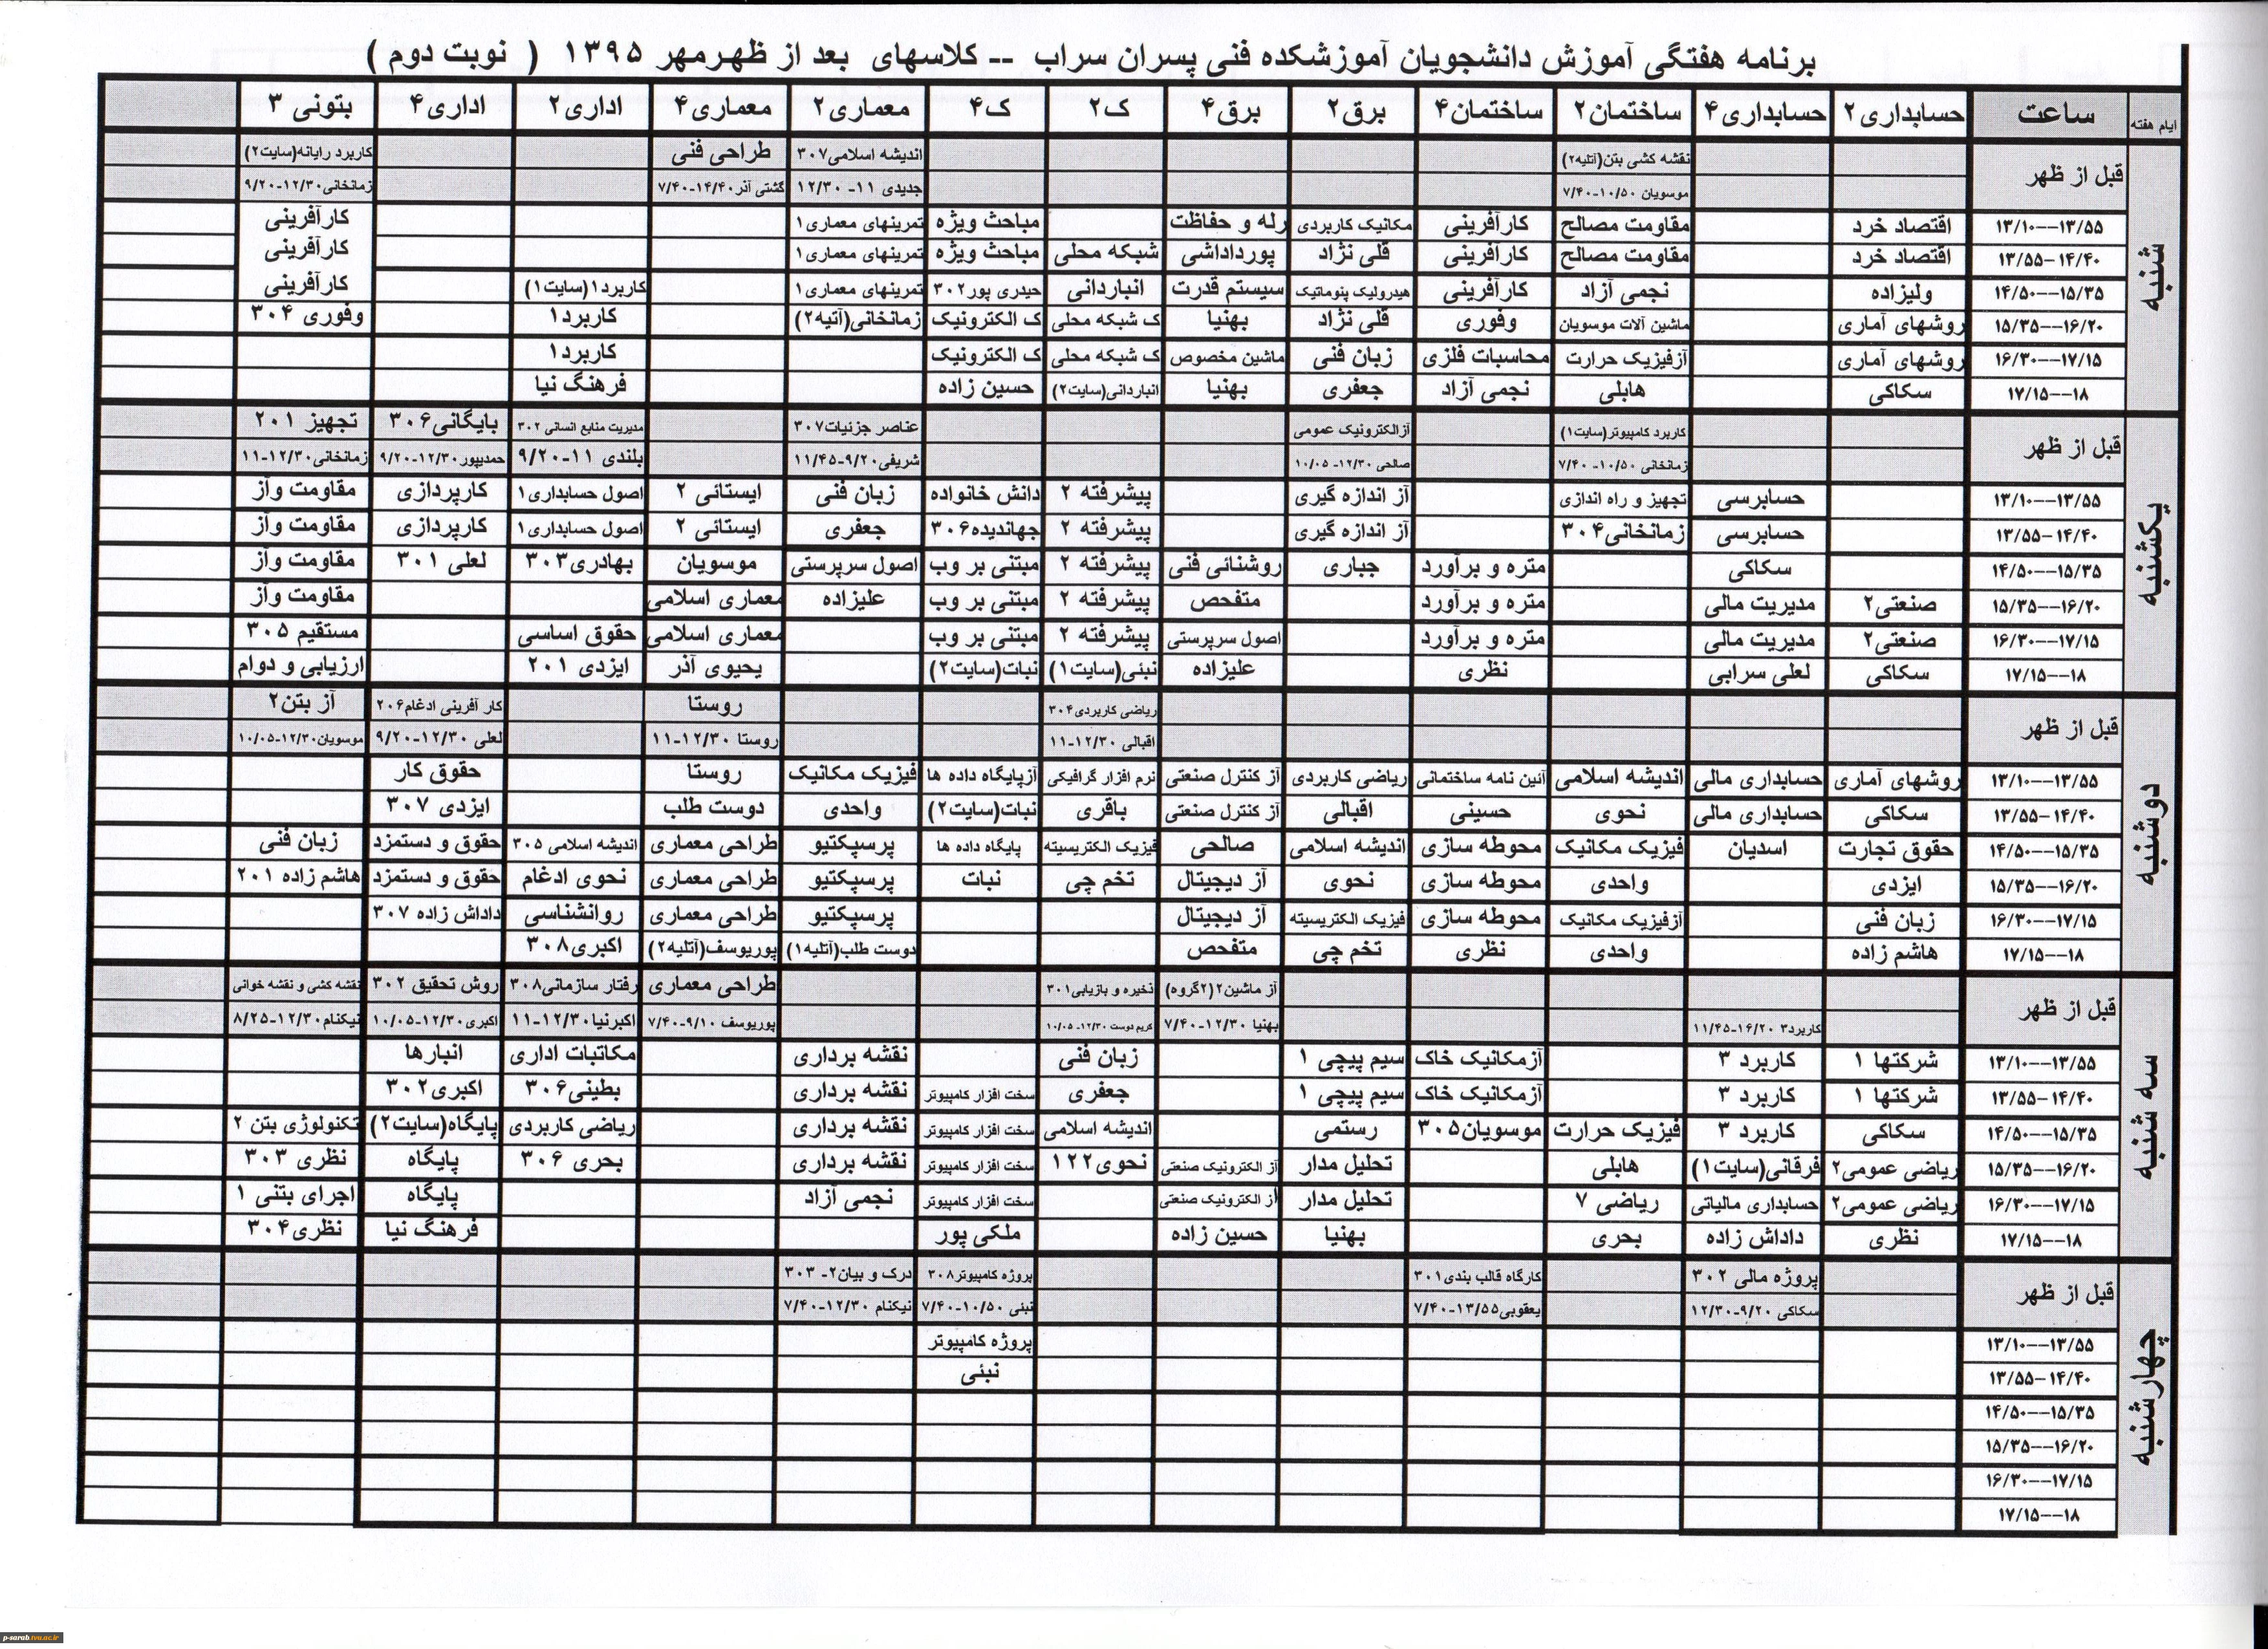 برنامه هفتگی آموزش دانشجویان آموزشکده فنی پسران سراب -- کلاسهای بعد از ظهرمهر ۱۳۹۵ ( نوبت دوم )
ایام هفته ساعت حسابداری۲ حسابداری۴ ساختمان۲ ساختمان۴ برق۲ برق۴ ک۲ ک۴ معماری۲ معماری۴ اداری۲ اداری۴ بتونی ۳
شنبه
قبل از ظهر نقشه کشی بتن(آتلیه۲) اندیشه اسلامی۳۰۷ طراحی فنی کاربرد رایانه(سایت۲)
موسویان ۱۰/۵۰-۷/۴۰ جدیدی ۱۱- ۱۲/۳۰ گشتی آذر۱۴/۴۰-۷/۴۰ زمانخانی۱۲/۳۰-۹/۲۰
۱۳/۱۰--۱۳/۵۵ اقتصاد خرد مقاومت مصالح کارآفرینی مکانیک کاربردی رله و حفاظت مباحث ویژه تمرینهای معماری۱ کارآفرینی
۱۳/۵۵-۱۴/۴۰ اقتصاد خرد مقاومت مصالح کارآفرینی قلی نژاد پورداداشی شبکه محلی مباحث ویژه تمرینهای معماری۱ کارآفرینی
۱۴/۵۰--۱۵/۳۵ ولیزاده نجمی آزاد کارآفرینی هیدرولیک پنوماتیک سیستم قدرت انباردانی حیدری پور۳۰۲ تمرینهای معماری۱ کاربرد۱(سایت۱) کارآفرینی
۱۵/۳۵--۱۶/۲۰ روشهای آماری ماشین آلات موسویان وفوری قلی نژاد بهنیا ک شبکه محلی ک الکترونیک زمانخانی(آتیه۲) کاربرد۱ وفوری ۳۰۴
۱۶/۳۰--۱۷/۱۵ روشهای آماری آزفیزیک حرارت محاسبات فلزی زبان فنی ماشین مخصوص ک شبکه محلی ک الکترونیک کاربرد۱
۱۷/۱۵--۱۸ سکاکی هابلی نجمی آزاد جعفری بهنیا انباردانی(سایت۲) حسین زاده فرهنگ نیا
یکشنبه
قبل از ظهر کاربرد کامپیوتر(سایت۱) آزالکترونیک عمومی عناصر جزئیات۳۰۷ مدیریت منابع انسانی ۳۰۲ بایگانی۳۰۶ تجهیز ۲۰۱
زمانخانی ۱۰/۵۰- ۷/۴۰ صالحی ۱۲/۳۰- ۱۰/۰۵ شریفی۹/۲۰-۱۱/۴۵ بلندی ۱۱-۹/۲۰ حمدیپور۱۲/۳۰-۹/۲۰ زمانخانی۱۲/۳۰-۱۱
۱۳/۱۰--۱۳/۵۵ حسابرسی تجهیز و راه اندازی آز اندازه گیری پیشرفته ۲ دانش خانواده زبان فنی ایستائی ۲ اصول حسابداری۱ کارپردازی مقاومت وآز
۱۳/۵۵-۱۴/۴۰ حسابرسی زمانخانی۳۰۴ آز اندازه گیری پیشرفته ۲ جهاندیده۳۰۶ جعفری ایستائی ۲ اصول حسابداری۱ کارپردازی مقاومت وآز
۱۴/۵۰--۱۵/۳۵ سکاکی متره و برآورد جباری روشنائی فنی پیشرفته ۲ مبتنی بر وب اصول سرپرستی موسویان بهادری۳۰۳ لعلی ۳۰۱ مقاومت وآز
۱۵/۳۵--۱۶/۲۰ صنعتی۲ مدیریت مالی متره و برآورد متفحص پیشرفته ۲ مبتنی بر وب علیزاده معماری اسلامی مقاومت وآز
۱۶/۳۰--۱۷/۱۵ صنعتی۲ مدیریت مالی متره و برآورد اصول سرپرستی پیشرفته ۲ مبتنی بر وب معماری اسلامی حقوق اساسی مستقیم ۳۰۵
۱۷/۱۵--۱۸ سکاکی لعلی سرابی نظری علیزاده نبئی(سایت۱) نبات(سایت۲) یحیوی آذر ایزدی ۲۰۱ ارزیابی و دوام
دوشنبه
قبل از ظهر ریاضی کاربردی۳۰۴ روستا کار آفرینی ادغام۲۰۶ آز بتن۲
اقبالی ۱۲/۳۰-۱۱ روستا ۱۲/۳۰-۱۱ لعلی ۱۲/۳۰-۹/۲۰ موسویان۱۲/۳۰-۱۰/۰۵
۱۳/۱۰--۱۳/۵۵ روشهای آماری حسابداری مالی اندیشه اسلامی آئین نامه ساختمانی ریاضی کاربردی آز کنترل صنعتی نرم افزار گرافیکی آزپایگاه داده ها فیزیک مکانیک روستا حقوق کار
۱۳/۵۵-۱۴/۴۰ سکاکی حسابداری مالی نحوی حسینی اقبالی آز کنترل صنعتی باقری نبات(سایت۲) واحدی دوست طلب ایزدی ۳۰۷
۱۴/۵۰--۱۵/۳۵ حقوق تجارت اسدیان فیزیک مکانیک محوطه سازی اندیشه اسلامی صالحی فیزیک الکتریسیته پایگاه داده ها پرسپکتیو طراحی معماری اندیشه اسلامی ۳۰۵ حقوق و دستمزد زبان فنی
۱۵/۳۵--۱۶/۲۰ ایزدی واحدی محوطه سازی نحوی آز دیجیتال تخم چی نبات پرسپکتیو طراحی معماری نحوی ادغام حقوق و دستمزد هاشم زاده ۲۰۱
۱۶/۳۰--۱۷/۱۵ زبان فنی آزفیزیک مکانیک محوطه سازی فیزیک الکتریسیته آز دیجیتال پرسپکتیو طراحی معماری روانشناسی داداش زاده ۳۰۷
۱۷/۱۵--۱۸ هاشم زاده واحدی نظری تخم چی متفحص دوست طلب(آتلیه۱) پوریوسف(آتلیه۲) اکبری۳۰۸
سه شنبه
قبل از ظهر آز ماشین۲(۲گروه) ذخیره و بازیابی۳۰۱ طراحی معماری رفتار سازمانی۳۰۸ روش تحقیق ۳۰۲ نقشه کشی و نقشه خوانی
کاربرد۳ ۱۶/۲۰-۱۱/۴۵ بهنیا ۱۲/۳۰-۷/۴۰ کریم دوست ۱۲/۳۰- ۱۰/۰۵ پوریوسف ۹/۱۰-۷/۴۰ اکبرنیا۱۲/۳۰-۱۱ اکبری۱۲/۳۰-۱۰/۰۵ نیکنام۱۲/۳۰-۸/۲۵
۱۳/۱۰--۱۳/۵۵ شرکتها ۱ کاربرد ۳ آزمکانیک خاک سیم پیچی ۱ زبان فنی نقشه برداری مکاتبات اداری انبارها
۱۳/۵۵-۱۴/۴۰ شرکتها ۱ کاربرد ۳ آزمکانیک خاک سیم پیچی ۱ جعفری سخت افزار کامپیوتر نقشه برداری بطینی۳۰۶ اکبری۳۰۲
۱۴/۵۰--۱۵/۳۵ سکاکی کاربرد ۳ فیزیک حرارت موسویان۳۰۵ رستمی اندیشه اسلامی سخت افزار کامپیوتر نقشه برداری ریاضی کاربردی پایگاه(سایت۲) تکنولوژی بتن ۲
۱۵/۳۵--۱۶/۲۰ ریاضی عمومی۲ فرقانی(سایت۱) هابلی تحلیل مدار آز الکترونیک صنعتی نحوی۱۲۲ سخت افزار کامپیوتر نقشه برداری بحری ۳۰۶ پایگاه نظری ۳۰۳
۱۶/۳۰--۱۷/۱۵ ریاضی عمومی۲ حسابداری مالیاتی ریاضی ۷ تحلیل مدار آز الکترونیک صنعتی سخت افزار کامپیوتر نجمی آزاد پایگاه اجرای بتنی ۱
۱۷/۱۵--۱۸ نظری داداش زاده بحری بهنیا حسین زاده ملکی پور فرهنگ نیا نظری۳۰۴
چهارشنبه
قبل از ظهر پروژه مالی ۳۰۲ کارگاه قالب بندی۳۰۱ پروژه کامپیوتر۳۰۸ درک و بیان۲- ۳۰۳
سکاکی ۹/۲۰-۱۲/۳۰ یعقوبی۱۳/۵۵-۷/۴۰ نبئی ۱۰/۵۰-۷/۴۰ نیکنام ۱۲/۳۰-۷/۴۰
۱۳/۱۰--۱۳/۵۵ پروژه کامپیوتر
۱۳/۵۵-۱۴/۴۰ نبئی
۱۴/۵۰--۱۵/۳۵
۱۵/۳۵--۱۶/۲۰
۱۶/۳۰--۱۷/۱۵
۱۷/۱۵--۱۸
p-sarab.tvu.ac.ir